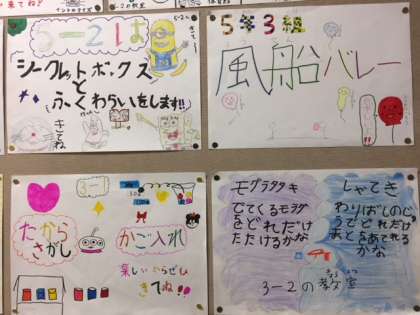 5-2は
シークレットボックス
と
ふくわらいをします!!
きてね
5年3組
風船バレー
3-1
たから
さがし
かご入れ
楽しいからぜひ
きてね!!
モグラタタキ
でてくるモラグ
をどれだけ
たたけるかな
しゃてき
わりばしのじゅ
うでどれだけ
まとをあてれる
かな
3-2の教室